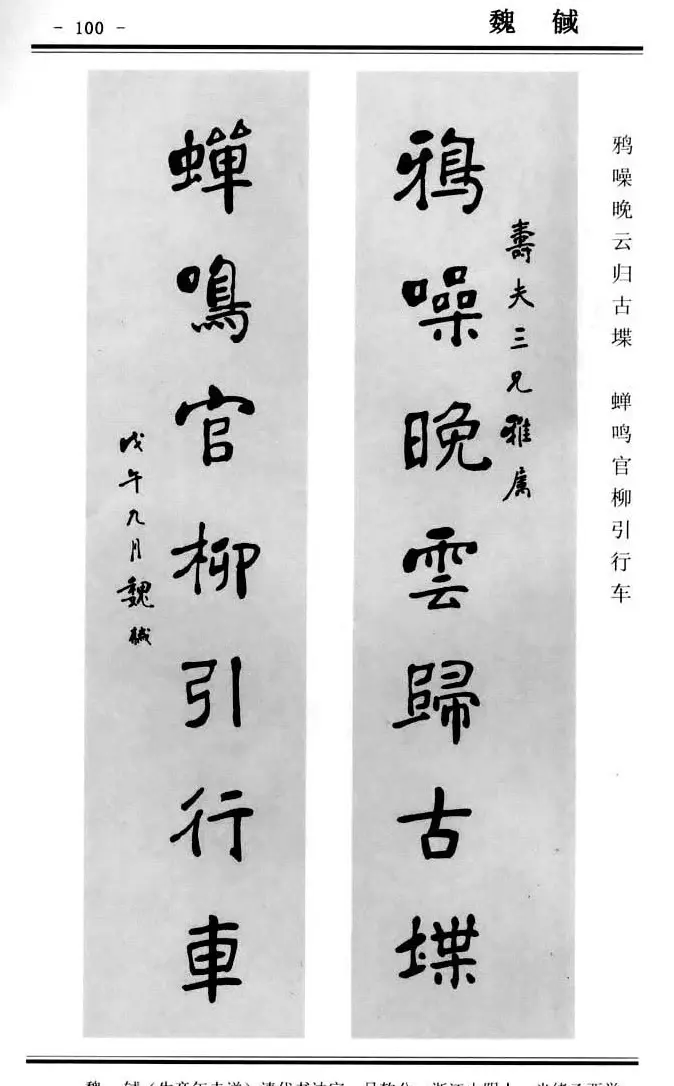 - 100 -
魏 馘
鸦噪晚云归古堞 蝉鸣官柳引行车
鴉噪晚雲歸古堞
壽夫三兄雅属
蟬鳴官柳引行車
戊午九月魏馘